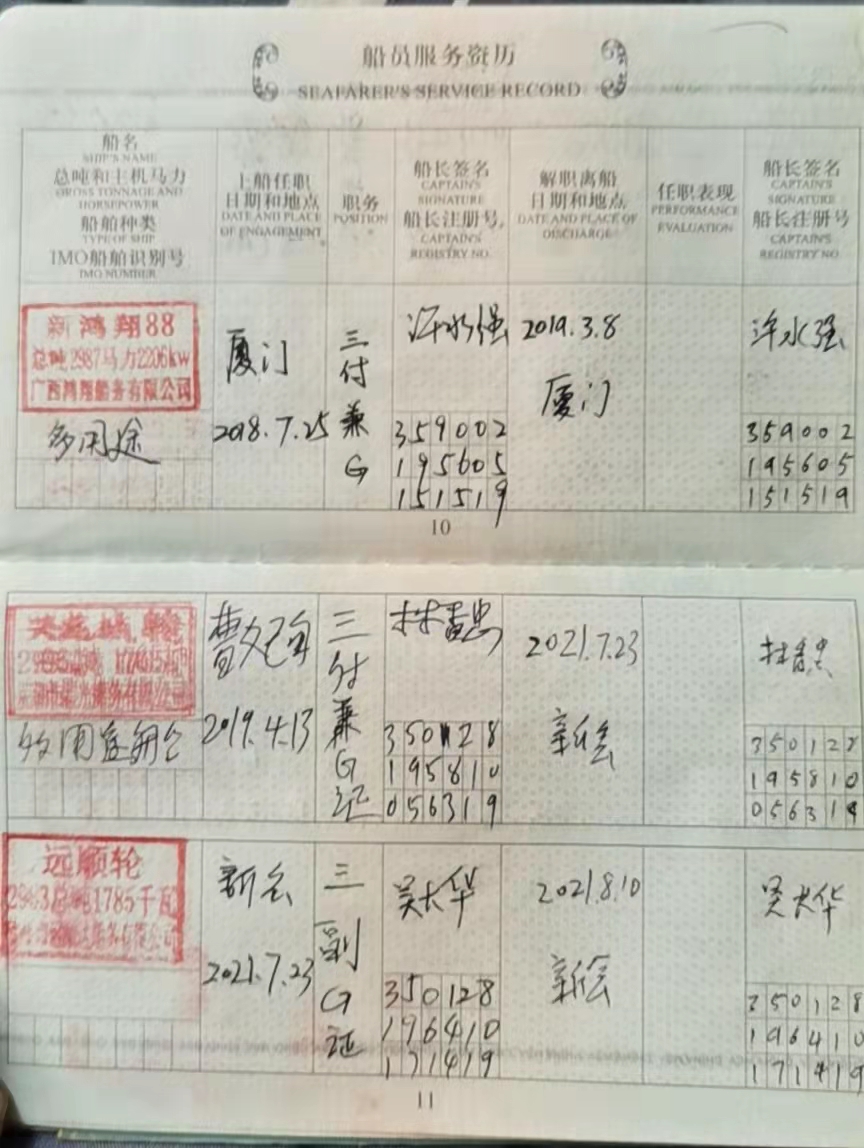 船员服务资历
SEAFARER'S SERVICE RECORD
船名
SHIP'S NAME
总吨和主机马力
GROSS TONNAGE AND
HORSEPOWER
船舶种类
TYPE OF SHIP
IMO船舶识别号
IMO NUMBER
上船任职
日期和地点
DATE AND PLACE
OF ENGAGEMENT
职务
POSITION
船长签名
CAPTAIN'S
SIGNATURE
船长注册号
CAPTAIN'S
REGISTRY NO.
解职离船
日期和地点
DATE AND PLACE OF
DISCHARGE
任职表现
PERFORMANCE
EVALUATION
船长签名
CAPTAIN'S
SIGNATURE
船长注册号
CAPTAIN'S
REGISTRY NO.
新鸿翔88
总吨2987马力2206kw
广西鸿翔船务有限公司
多用途
厦门
2018.7.25
三
付
兼
G
水强
359002
195605
151519
2019.3.8
厦门
水强
359002
195605
151519
10
2019.4.13
三
付
兼
G
证
林
350128
195810
056319
2021.7.23
新会
林
350128
195810
056319
远顺轮
1785千瓦
新会
2021.7.23
三
副
G
证
吴大华
350128
196410
171419
2021.8.10
新会
吴大华
350128
196410
171419
11